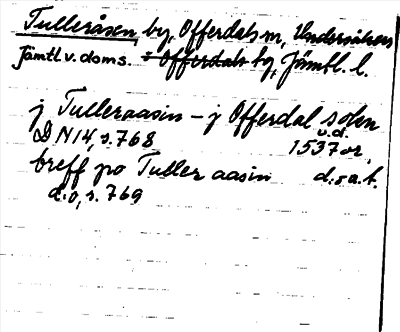 Tulleråsen, by, Offerdals sn, Undersåkers
Jämtl. v. doms. i Offerdals tg, Jämtl. l.
j Tulleraasin – j Offerdal sokn
DN 14, s. 768 u.d.
1537 or.
breff po Tuller aasin d:o a.t.
d:o, s. 769